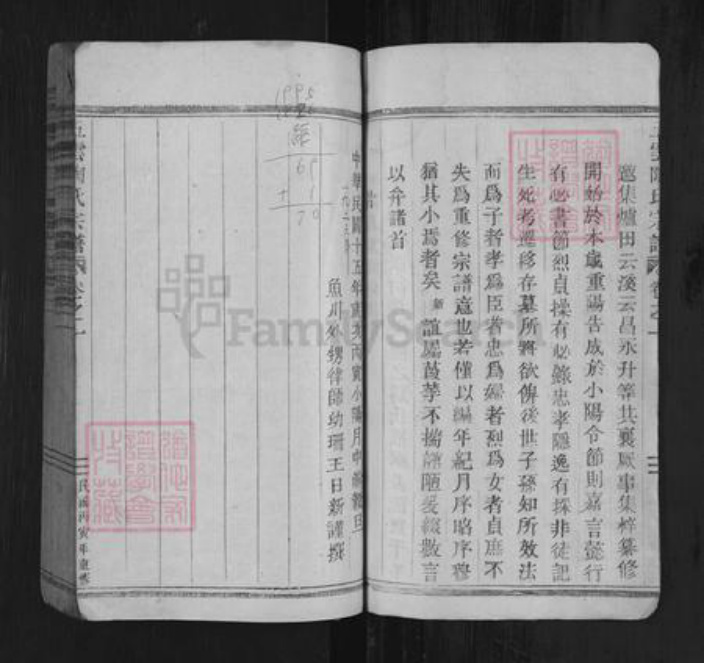 邀集爐田云溪云昌永升等共襄厥事集梓纂修
開始於本歲重陽告成於小陽令節則嘉言懿行
有必書節烈貞操有必錄忠孝隱逸有採非徒記
生死考遷移存墓所將欲俾後世子孫知所效法
而為子者孝為臣者忠為婦者烈為女者貞庶不
失為重修宗譜意也若僅以編年紀月序昭序穆
猶其小焉者矣新誼屬莒莩不揣譾陋爰綴數言
以弁諸首
中華民國十五年歲次丙寅小陽月中浣穀旦
魚川外甥律師幼珊王日新謹撰
陶氏宗譜 卷之一
民國丙寅年重修
FamilySearch